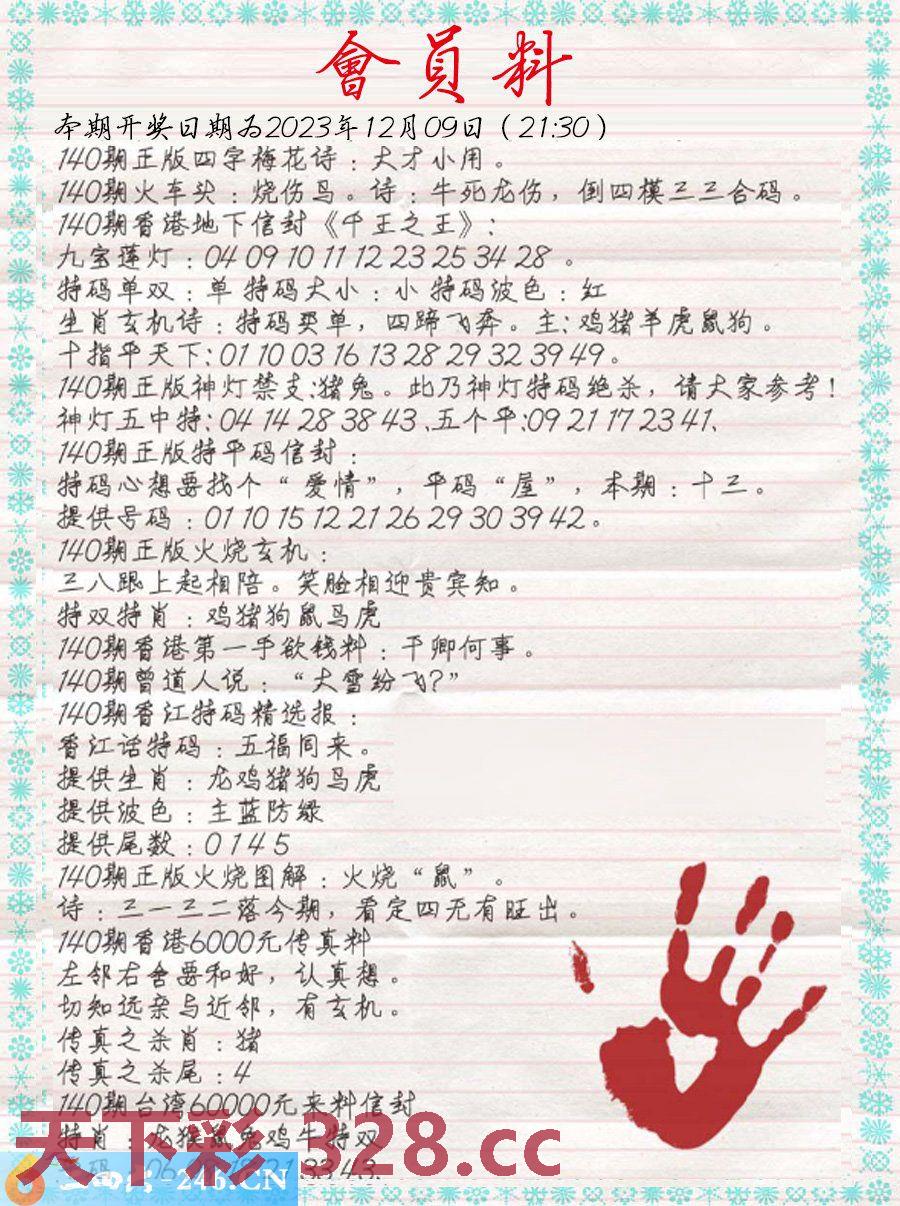 會員料
本期开奖日期为2023年12月09日（21:30）
140期正版四字梅花诗：大才小用。
140期火车头：烧伤鸟。诗：牛死龙伤，倒四模三三合码。
140期香港地下信封《千王之王》：
九宝莲灯：04 09 10 11 12 23 25 34 28 。
特码单双：单 特码大小：小 特码波色：红
生肖玄机诗：特码买单，四蹄飞奔。主：鸡猪羊虎鼠狗。
十指平天下：01 10 03 16 13 28 29 32 39 49。
140期正版神灯禁支：猪兔。此乃神灯特码绝杀，请大家参考！
神灯五中特：04 14 28 38 43、五个平：09 21 17 23 41、
140期正版特平码信封：
特码心想要找个“爱情”，平码“屋”，本期：十三。
提供号码：01 10 15 12 21 26 29 30 39 42。
140期正版火烧玄机：
三八跟上起相陪。笑脸相迎贵宾知。
特双特肖：鸡猪狗鼠马虎
140期香港第一手欲钱料：干卿何事。
140期曾道人说：“大雪纷飞？”
140期香江特码精选报：
香江话特码：五福同来。
提供生肖：龙鸡猪狗马虎
提供波色：主蓝防绿
提供尾数：0 1 4 5
140期正版火烧图解：火烧“鼠”。
诗：三一三二落今期，看定四无有旺出。
140期香港6000元传真料
左邻右舍要和好，认真想。
切知远亲与近邻，有玄机。
传真之杀肖：猪
传真之杀尾：4
140期台湾60000元来料信封
特肖：龙猴鼠兔鸡牛特双
天下彩 328.cc
246.CN
33 43.